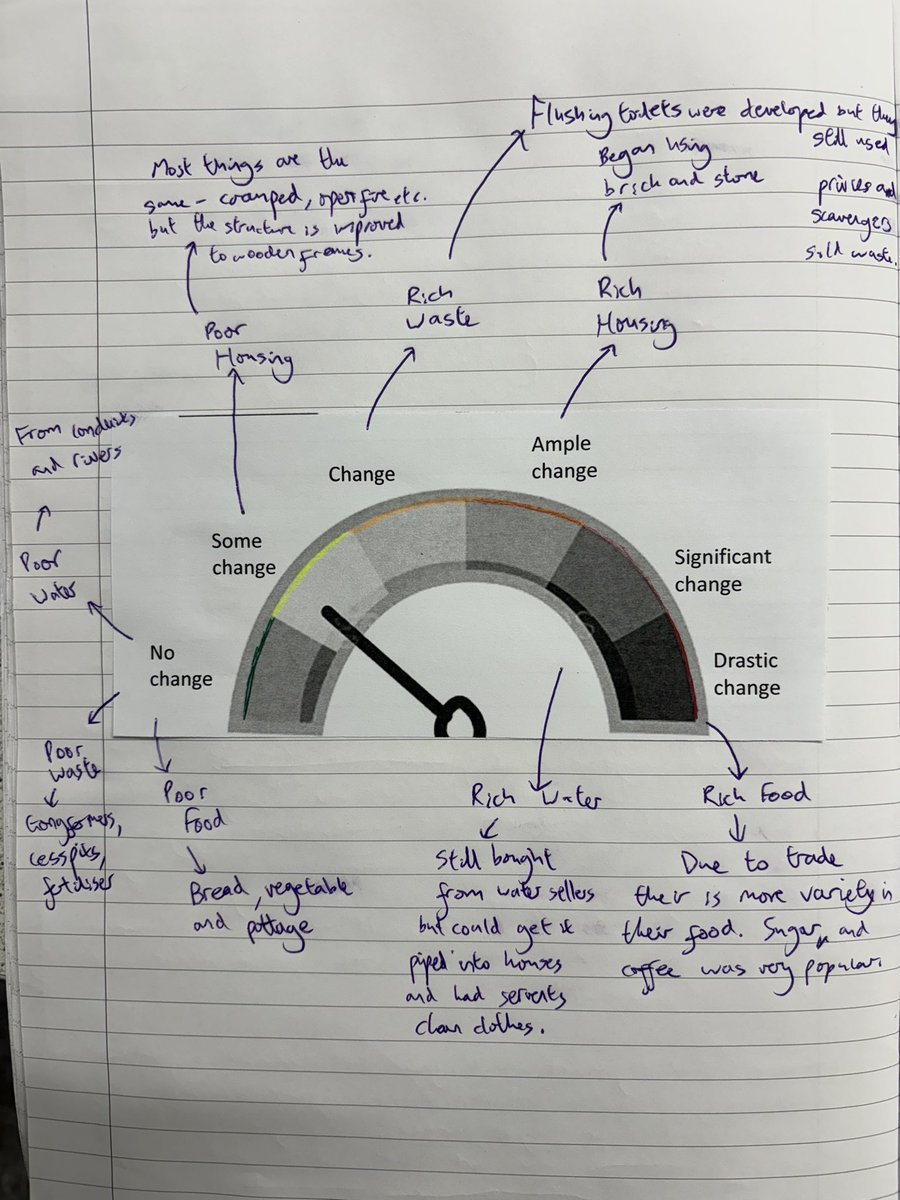 Flushing toilets were developed but they
still used
privies and
scavengers
sold waste.
Began using
brick and stone
Most things are the
same - cramped, open fire etc.
but the structure is improved
to wooden frames.
Rich
Waste
Rich
Housing
Poor
Housing
From conduits
and rivers
Poor
water
Change
Ample
change
Some
change
Significant
change
No
change
Drastic
change
Poor
waste
Gongfarmers,
cesspits,
Poor
Food
Bread, vegetable
and pottage
Rich Water
Still bought
from water sellers
but could get it
piped into houses
and had servents
clean clothes.
Rich Food
Due to trade
their is more variety in
their food. Sugar, and
coffee was very popular.